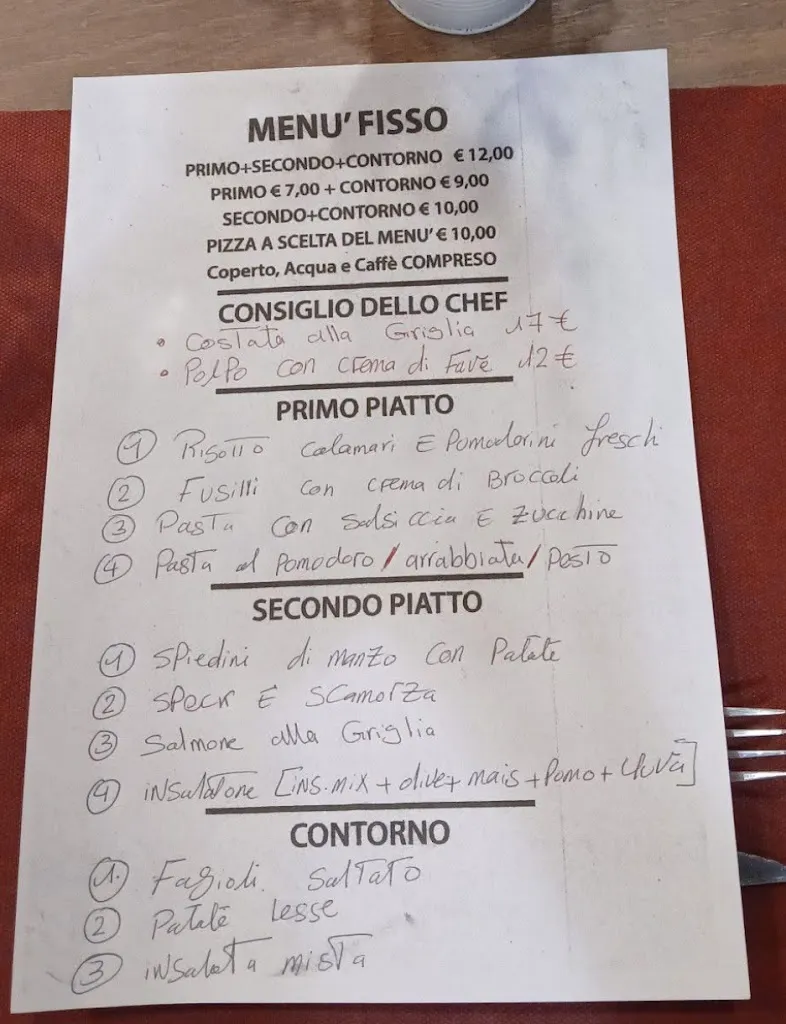 MENU' FISSO
PRIMO+SECONDO+CONTORNO € 12,00
PRIMO € 7,00 + CONTORNO € 9,00
SECONDO+CONTORNO € 10,00
PIZZA A SCELTA DEL MENU' € 10,00
Coperto, Acqua e Caffè COMPRESO
CONSIGLIO DELLO CHEF
• Costata alla Griglia 17 €
• Polpo con crema di Fave 12 €
PRIMO PIATTO
1 Risotto calamari E Pomodorini freschi
2 Fusilli con crema di Broccoli
3 Pasta con salsiccia E zucchine
4 Pasta al Pomodoro / arrabbiata / Pesto
SECONDO PIATTO
1 Spiedini di manzo con Patate
2 Speck E Scamorza
3 Salmone alla Griglia
4 insalatone [ins. mix + olive + mais + Pomo + Uova]
CONTORNO
1. Fagioli saltato
2 Patate lesse
3 insalata mista